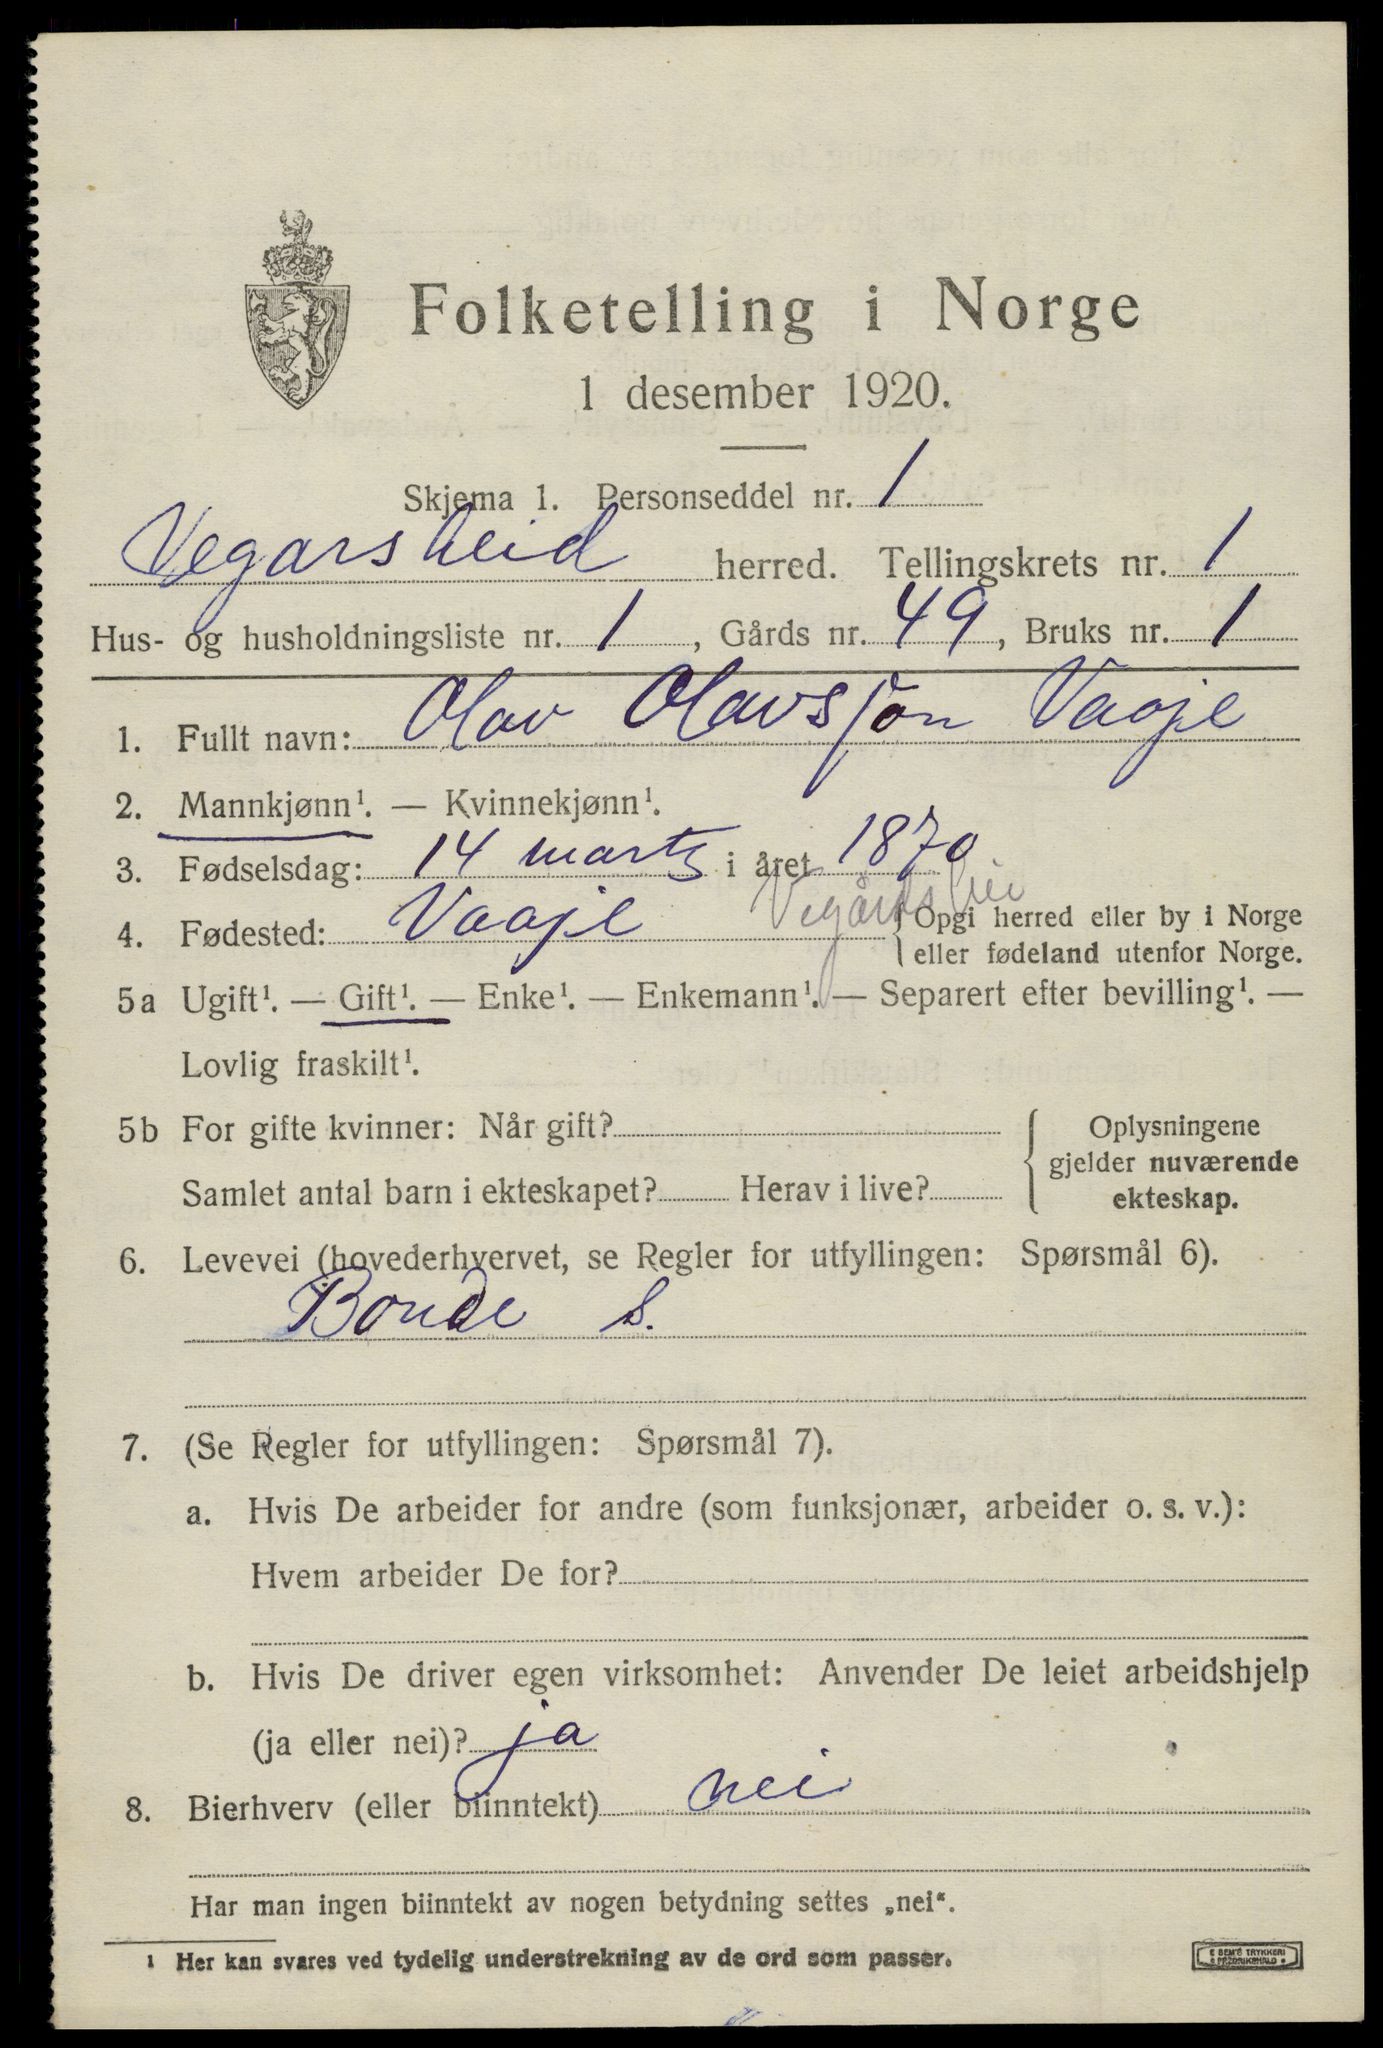 Folketelling i Norge
1 desember 1920.
Skjema 1. Personseddel nr. 1
Vegarsheid herred. Tellingskrets nr. 1
Hus- og husholdningsliste nr. 1, Gårds nr. 49, Bruks nr. 1
1. Fullt navn: Olav Olavsjon Vaaje
2. Mannkjønn¹. — Kvinnekjønn¹.
3. Fødselsdag: 14 marts i året 1870
4. Fødested: Vaaje Vegårdshei { Opgi herred eller by i Norge
eller fødeland utenfor Norge.
5a Ugift¹. — Gift¹. — Enke¹. — Enkemann¹. — Separert efter bevilling¹. —
Lovlig fraskilt¹.
5b For gifte kvinner: Når gift? { Oplysningene
gjelder nuværende
Samlet antal barn i ekteskapet? Herav i live? ekteskap.
6. Levevei (hovederhvervet, se Regler for utfyllingen: Spørsmål 6).
Bonde s.
7. (Se Regler for utfyllingen: Spørsmål 7).
a. Hvis De arbeider for andre (som funksjonær, arbeider o. s. v.):
Hvem arbeider De for?
b. Hvis De driver egen virksomhet: Anvender De leiet arbeidshjelp
(ja eller nei)? ja
8. Bierhverv (eller biinntekt) nei
Har man ingen biinntekt av nogen betydning settes „nei“.
¹ Her kan svares ved tydelig understrekning av de ord som passer.
E SEM'S TRYKKERI
FREDRIKSHALD